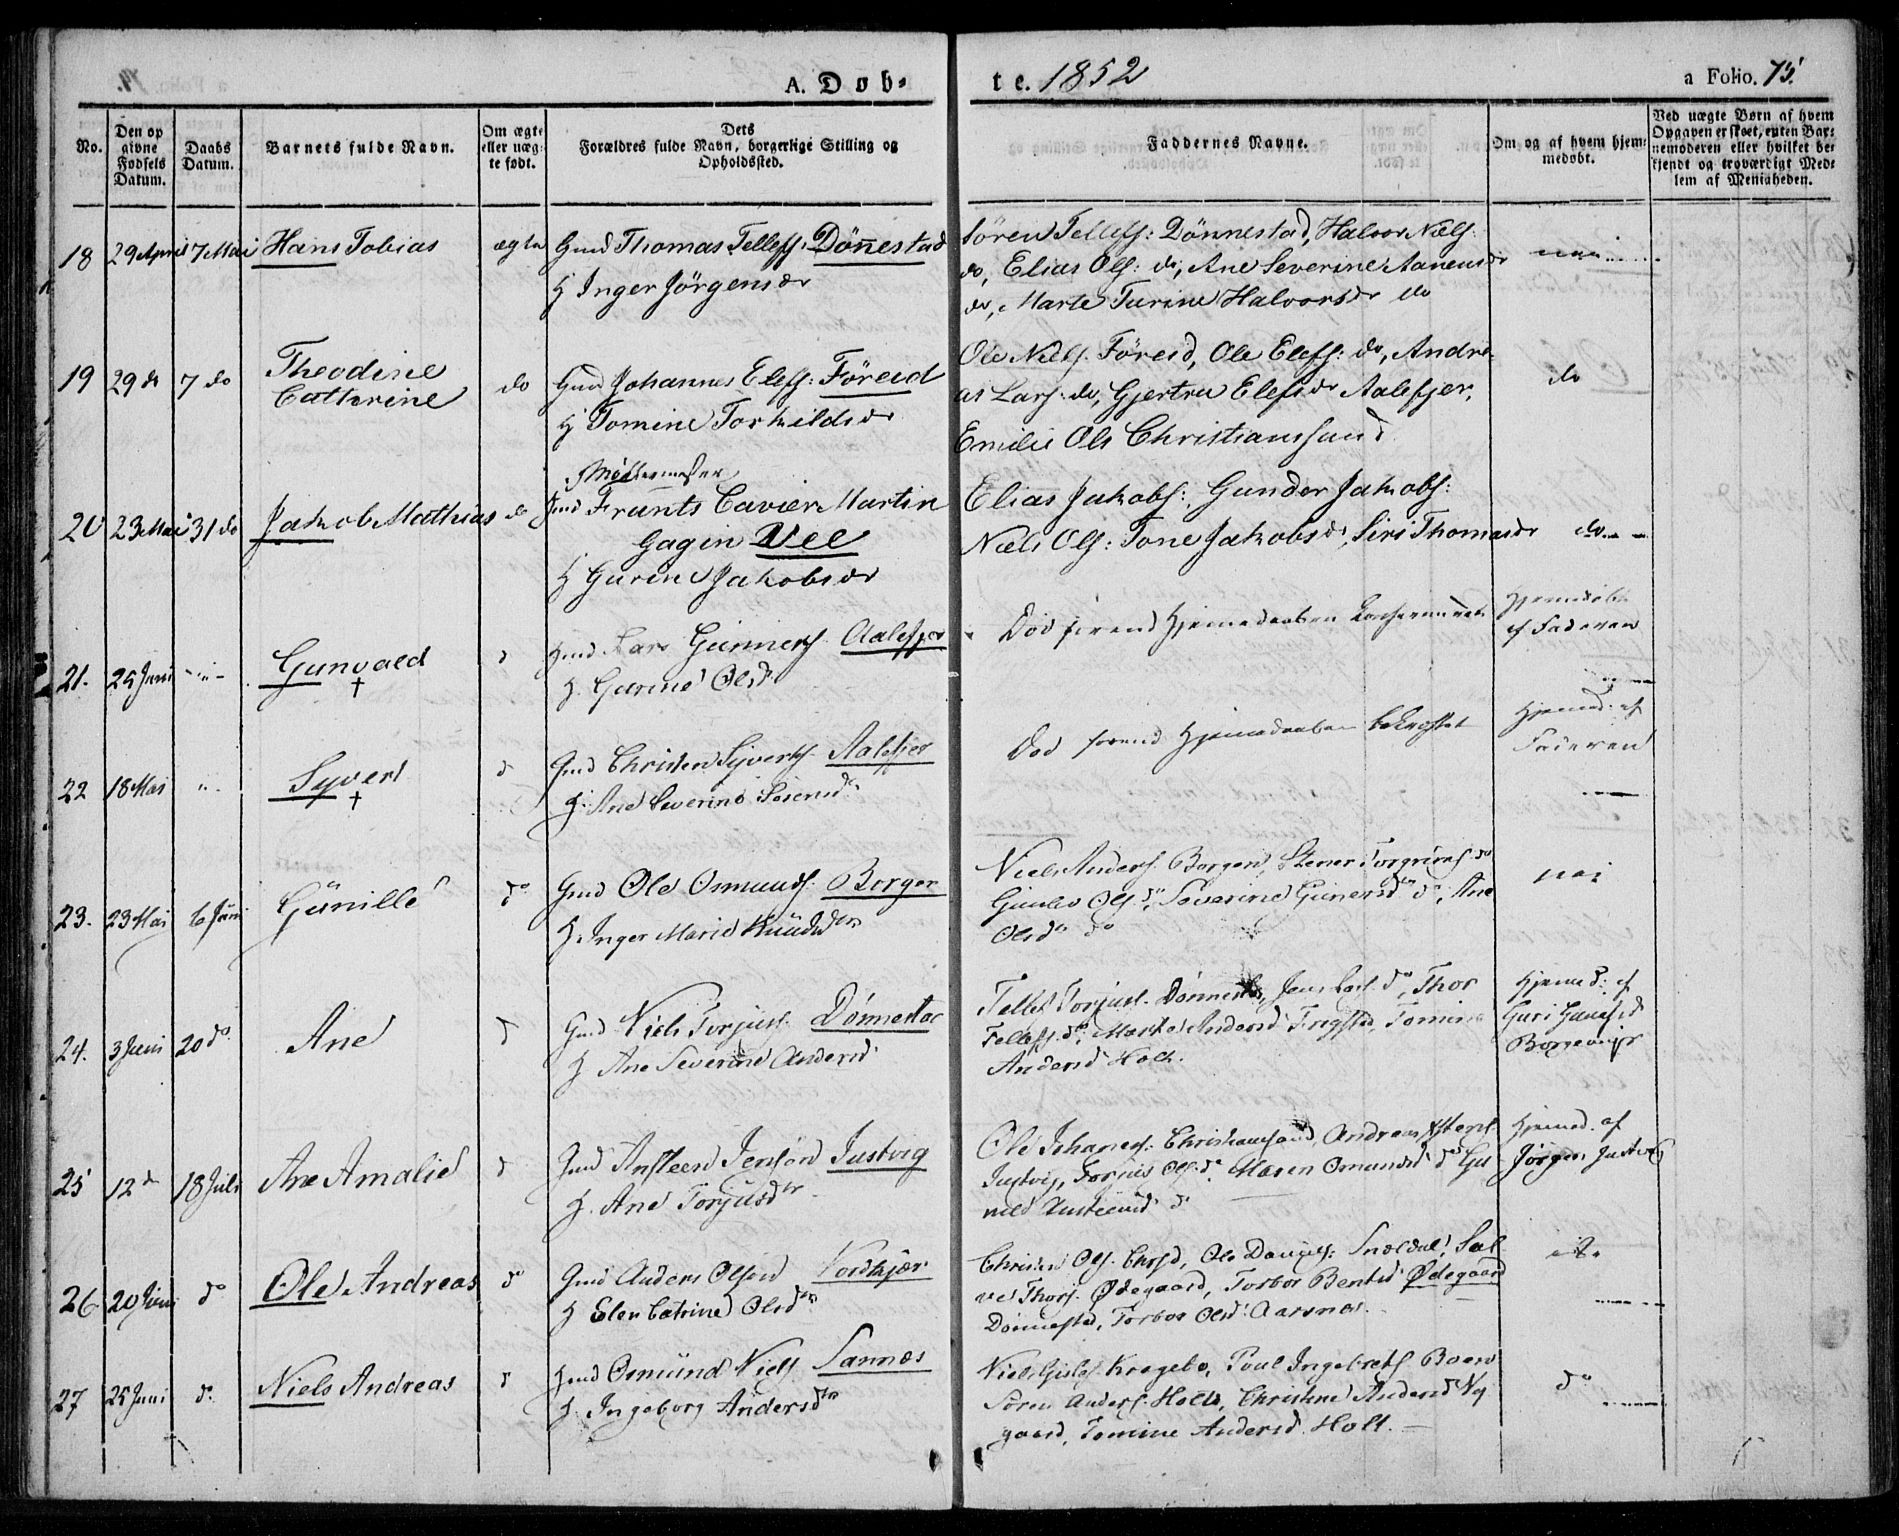 A. Døb-
te. 1852
a Folio. 75.
No.
Den op
givne
Fødsels
Datum.
Daabs
Datum.
Barnets fulde Navn.
Om ægte
eller uæg-
te født.
Dets
Forældres fulde Navn, borgerlige Stilling og
Opholdssted.
Faddernes Navne.
Om og af hvem hjem-
medøbt.
Ved uægte Børn af hvem
Opgaven er skeet, enten Bar-
nemoderen eller hvilket be-
kjendt og troværdigt Med-
lem af Menigheden.
18 29 April 7 Mai Hans Tobias ægte Gmd Thomas Tellefs: Dönnestad
H Inger Jörgensdr
Sören Tellefs: Dönnestad, Halvor Niels:
do, Elias Ols: do, Ane Severine Aanensdr
do, Marte Turine Halvorsdr do
nei
19 29 do 7 do Theodine
Cathrine
do Gmd Johannes Elefs: Föreid
H Tomine Torkildsdr
Ole Niels: Föreid, Ole Elefs: do, Andre-
as Lars: do, Gjertru Elefsdr Aalefjer,
Emilie Ols Christianssand
do
20 23 Mai 31 do Jakob Mathias do
Möllermester
Gmd Frants Cavier Martin
Gagin Vee
H Gurine Jakobsdr
Elias Jakobs: Gunder Jakobs:
Niels Ols: Tone Jakobsdr, Siri Thomasdr
do
21. 25 Juni Gunvald † d Gmd Lars Gunners. Aalefjer
H. Gurine Olsd
Död förend Hjemmedaaben
Hjemdöbt
af Faderen
22 18 Mai Syvert † d Gmd Christen Syverts. Aalefjer
H. Ane Severine
Död forend Hjemmedaaben bekræftet
Hjemd. af
Faderen
23. 23 Mai 6 Juni Günille do Gmd Ole Osmunds. Borgen
H. Inger Marie Knudsdtr
Niels Anders. Borgen, Stener Torgrims do
Gunlev Ols. do, Severine Gunersdtr do, Ane
Olsdr do
nei
24. 3 Juni 20 do Ane d Gmd Niels Torjus. Dönnestad
H Ane Severine Andersd
Tellef Torjus. Dönnestad, Jens Lars. do, Thor
Tellefs. do, Marte Andersd Trygstad, Tomine
Andersd Holt.
Hjemd: af
Guri Hansd
25 12 d 18 Juli Ane Amalie d Gmd Ansteen Jensön Justvig
H. Ane Torjusdtr
Ole Johanes: Christiansand, Andreas
Justvig, Torjus Ols. do Maren Osmundsd do Gu-
nild d
Hjemd. af
Jörgen Justvig
26 20 Juni do Ole Andreas do Gmd Anders Olsön Nordkjær
H Elen Catrine Olsdtr
Christen Ols. Ole Daniels: Snældal, Sal
ve Thors. Ødegaard, Torbor Bentsd Ødegaard
Dönnestad, Torbor Olsd Aarsnes.
27 25 Juni do Niels Andreas d Gmd Osmünd Niels Sannes
H. Ingeborg Andersdtr
Niels Gisles. Kragebo, Poul Ingebrets Boen
Sören Anders. Holte, Christine Andersd Ny
gaard, Tomine Andersd. Holt.
do